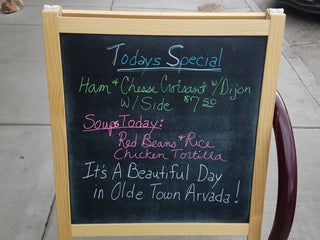 Todays Special
Ham & Chesse Croisant w/Dijon
w/ Side $7.50
Soups Today:
Red Beans & Rice
Chicken Tortilla
It's A Beautiful Day
in Olde Town Arvada!